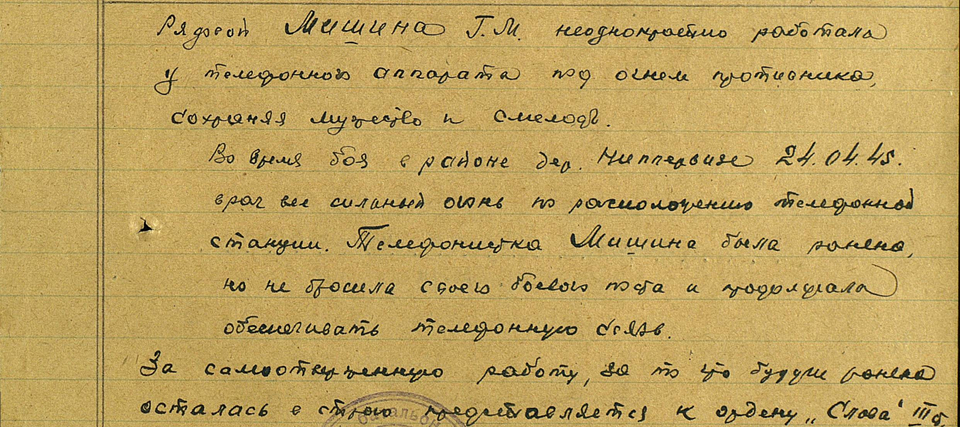 Рядовой Мишина Г.М. неоднократно работала
у телефонного аппарата под огнем противника,
сохраняя мужество и смелость.
Во время боя в районе дер. 24.04.45.
враг вел сильный огонь по расположению телефонной
станции. Телефонистка Мишина была ранена,
но не бросила своего боевого поста и продолжала
обеспечивать телефонную связь.
За самоотверженную работу, за то что будучи ранена
осталась в строю представляется к ордену „Слава" III
батальон